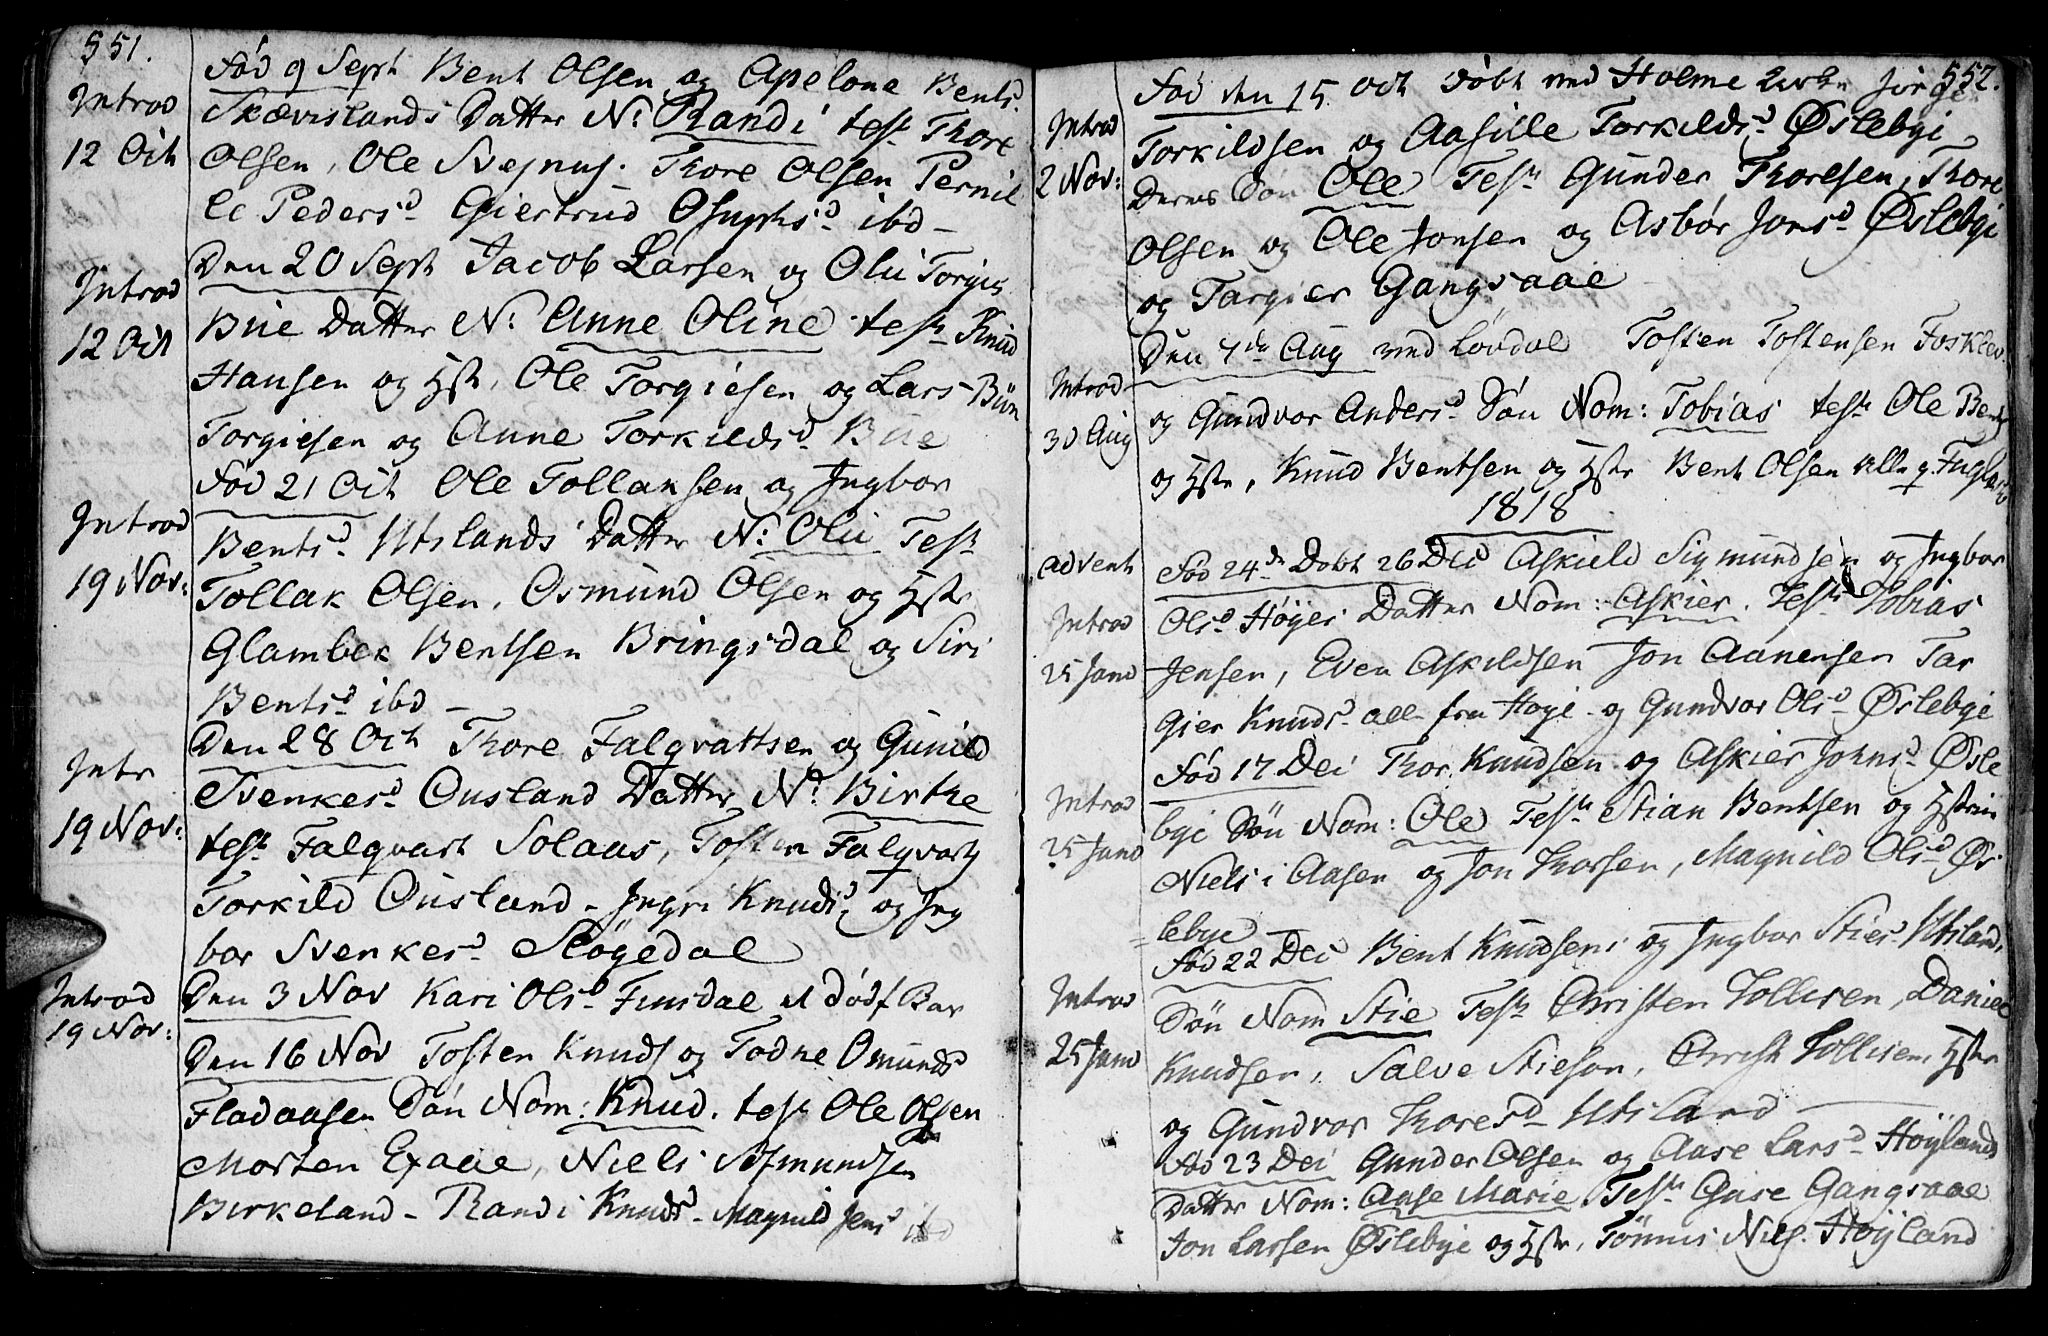 551.
Introd
12 Oct
Fød 9 Sept Bent Olsen og Apelone Bents.
Skævislands Datter N: Randi test Thore
Olsen, Ole Thore Olsen Pernil
le Pedersd Giertrud ibd –
Introd
12 Oct
Den 20 Sept Jacob Larsen og Olii Torgies
Büe Datter N: Anne Oline test Knüd
Hansen og Hstr, Ole Torgiesen og Lars
Torgiesen og Anne Torkildsd Büe
Introd
19 Nov:
Fød 21 Oct Ole Tollaksen og Ingbor
Bentsd Utslands Datter N: Olii Test
Tollak Olsen, Osmünd Olsen og Hstr
Glambek Bentsen Bringsdal og Siri
Bentsd ibd –
Intr
19 Nov:
Den 28 Oct Thore Falqvattsen og Günild
Svenkesd Ousland Datter N: Birthe
test Falqvart Solaas, Tosten Falqvarts
Torkild Ousland – Ingri Knudsd og Ing
bor Svenkesd Støgedal
Introd
19 Nov:
Den 3 Nov Kari Olsd Finsdal et dødf Bar
Den 16 Nov Tosten Knuds og Todne Omunds
Fladaasen Søn Nom: Knud. test Ole Olsen
Morten Exaae, Niels Asmundsen
Birkeland – Randi Knudsd – Magnild Jensd ibd
552.
Introd
2 Nov:
Fød den 15 Oct døbt ved Holme
Torkildsen og Aasille Torkildsd Øslebyi
Deres Søn Ole Test Günder Thoresen, Thore
Olsen og Ole Jonsen og Asbør Jonsd Øslebyi
og Targier Gangsaae
Introd
30 Aug
Den 7de Aug ved Løvdal Tosten Tostensen Fosklev.
og Gündvor Andersd Søn Nom: Tobias test Ole Bents
og Hstr, Knüd Bentsen og Hstr Bent Olsen alle
1818
advent
Introd
25 Janu
Fød 24de Døbt 26 Dec Askield Sigmündsen og Ingbor
Olsd Høyes Datter Nom: Askier. Test Tobias
Jensen, Even Askildsen Jon Aanensen Tar
gier Knudsd alle fra Høye – og Gundvor Olsd Øslebye
Introd
25 Janu
Fød 17 Dec Thor Knudsen og Askier Johnsd Øsle
bye Søn Nom: Ole Test Stian Bentsen og Hstrin
Niels i Aasen og Jon Thorsen, Magnild Olsd Øs
lebye
Introd
25 Janu
Fød 22 Dec Bent Knudsen og Ingbor Stiesd Utsland
Søn Nom Stie Test Christen Tollisen, Daniel
Knudsen, Salve Stieson, Christ Tollisen, Hstr
og Gündvor Thoresd Utsland
Fød 23 Dec Gunder Olsen og Aase Larsd Høyland
Datter Nom: Aase Marie Test Guse Gangsaae
Jon Larsen Øslebye og Hstr, Tønnes Niels. Høyland